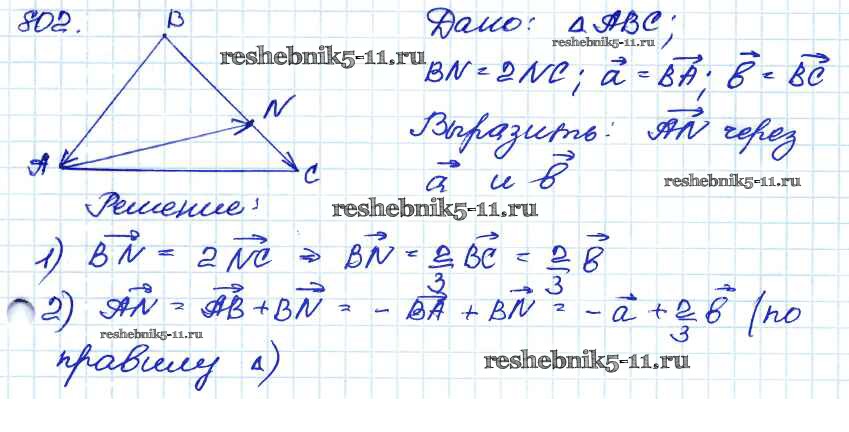 802.
B
N
A
C
Дано: △ABC;
reshebnik5-11.ru
reshebnik5-11.ru
BN = 2NC; a⃗ = BA⃗; b⃗ = BC⃗
Выразить: AN⃗ через
a⃗ и b⃗
reshebnik5-11.ru
Решение:
reshebnik5-11.ru
1) BN⃗ = 2 NC⃗ ⇒ BN⃗ = 2/3 BC⃗ = 2/3 b⃗
2) AN⃗ = AB⃗ + BN⃗ = - BA⃗ + BN⃗ = - a⃗ + 2/3 b⃗ (по
reshebnik5-11.ru
правилу △)
reshebnik5-11.ru